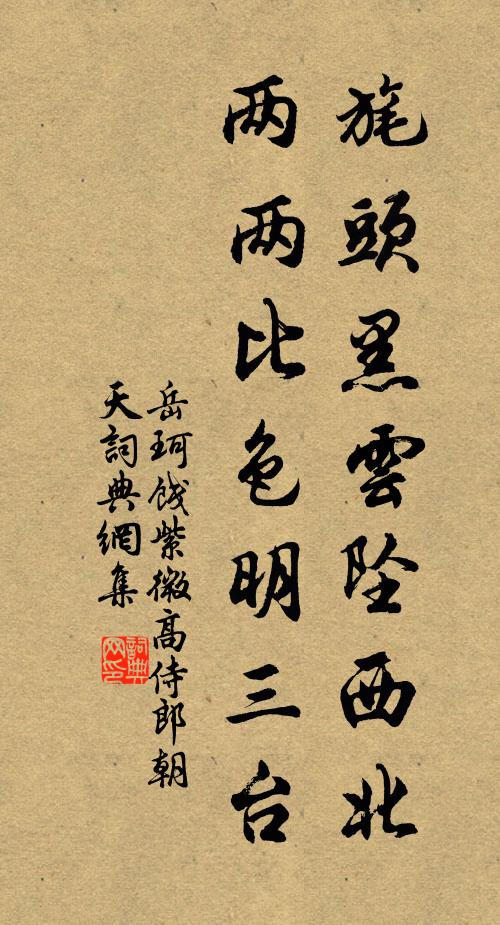 旄頭黑雲墜西北
两两比色明三台
岳珂餞紫微高侍郎朝
天詞典網集
詞典网印